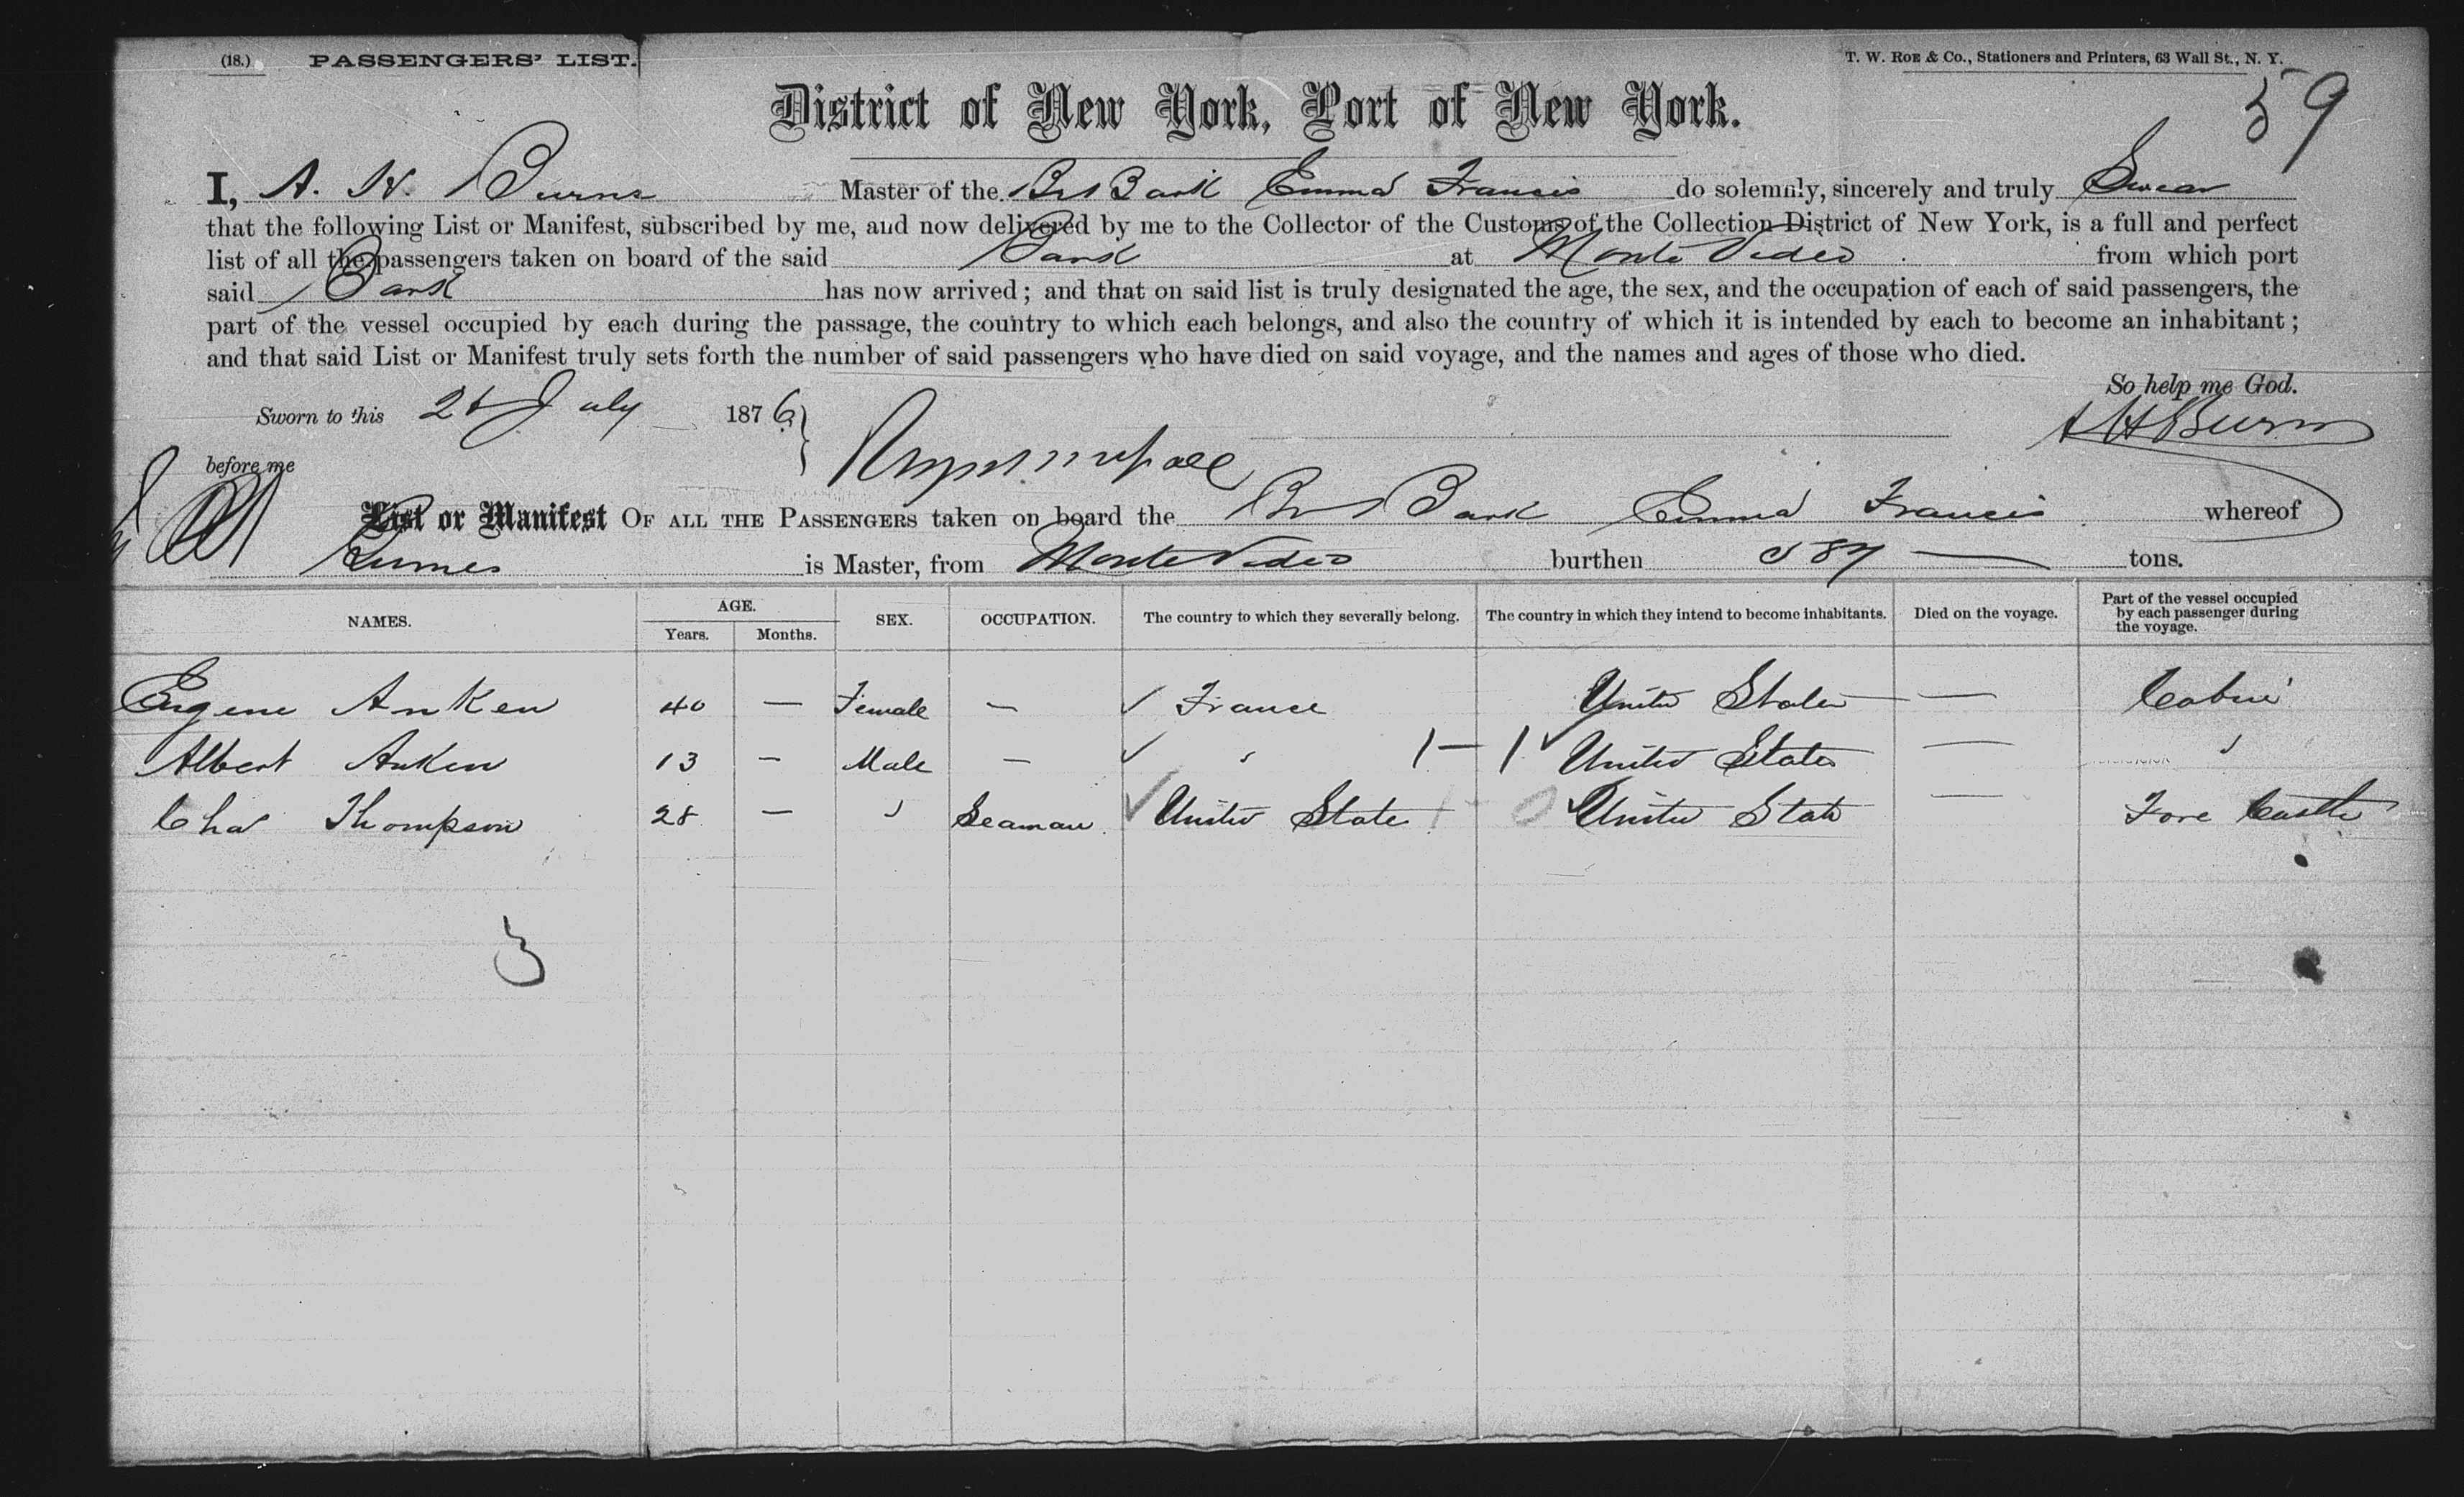 (18.) PASSENGERS' LIST. T. W. ROE & Co., Stationers and Printers, 63 Wall St., N. Y.
59
District of New York, Port of New York.
I, A. H. Burns Master of the Br Bark Emma Francis do solemnly, sincerely and truly Swear
that the following List or Manifest, subscribed by me, and now delivered by me to the Collector of the Customs of the Collection District of New York, is a full and perfect
list of all the passengers taken on board of the said Bark at Monte Video from which port
said Bark has now arrived; and that on said list is truly designated the age, the sex, and the occupation of each of said passengers, the
part of the vessel occupied by each during the passage, the country to which each belongs, and also the country of which it is intended by each to become an inhabitant;
and that said List or Manifest truly sets forth the number of said passengers who have died on said voyage, and the names and ages of those who died.
So help me God.
Sworn to this July 1876 A H Burns
before me
List or Manifest OF ALL THE PASSENGERS taken on board the Br Bark Emma Francis whereof
is Master, from Monte Video burthen 587 — tons.
NAMES. AGE. Years. Months. SEX. OCCUPATION. The country to which they severally belong. The country in which they intend to become inhabitants. Died on the voyage. Part of the vessel occupied by each passenger during the voyage.
Eugene Anken 40 — Female — ✓ France United States — Cabin
Albert Anken 13 — Male — ✓ " 1 — 1 ✓ United States — "
Cha Thompson 28 — " Seaman ✓ United State 0 ✓ United State — Fore Castle
3